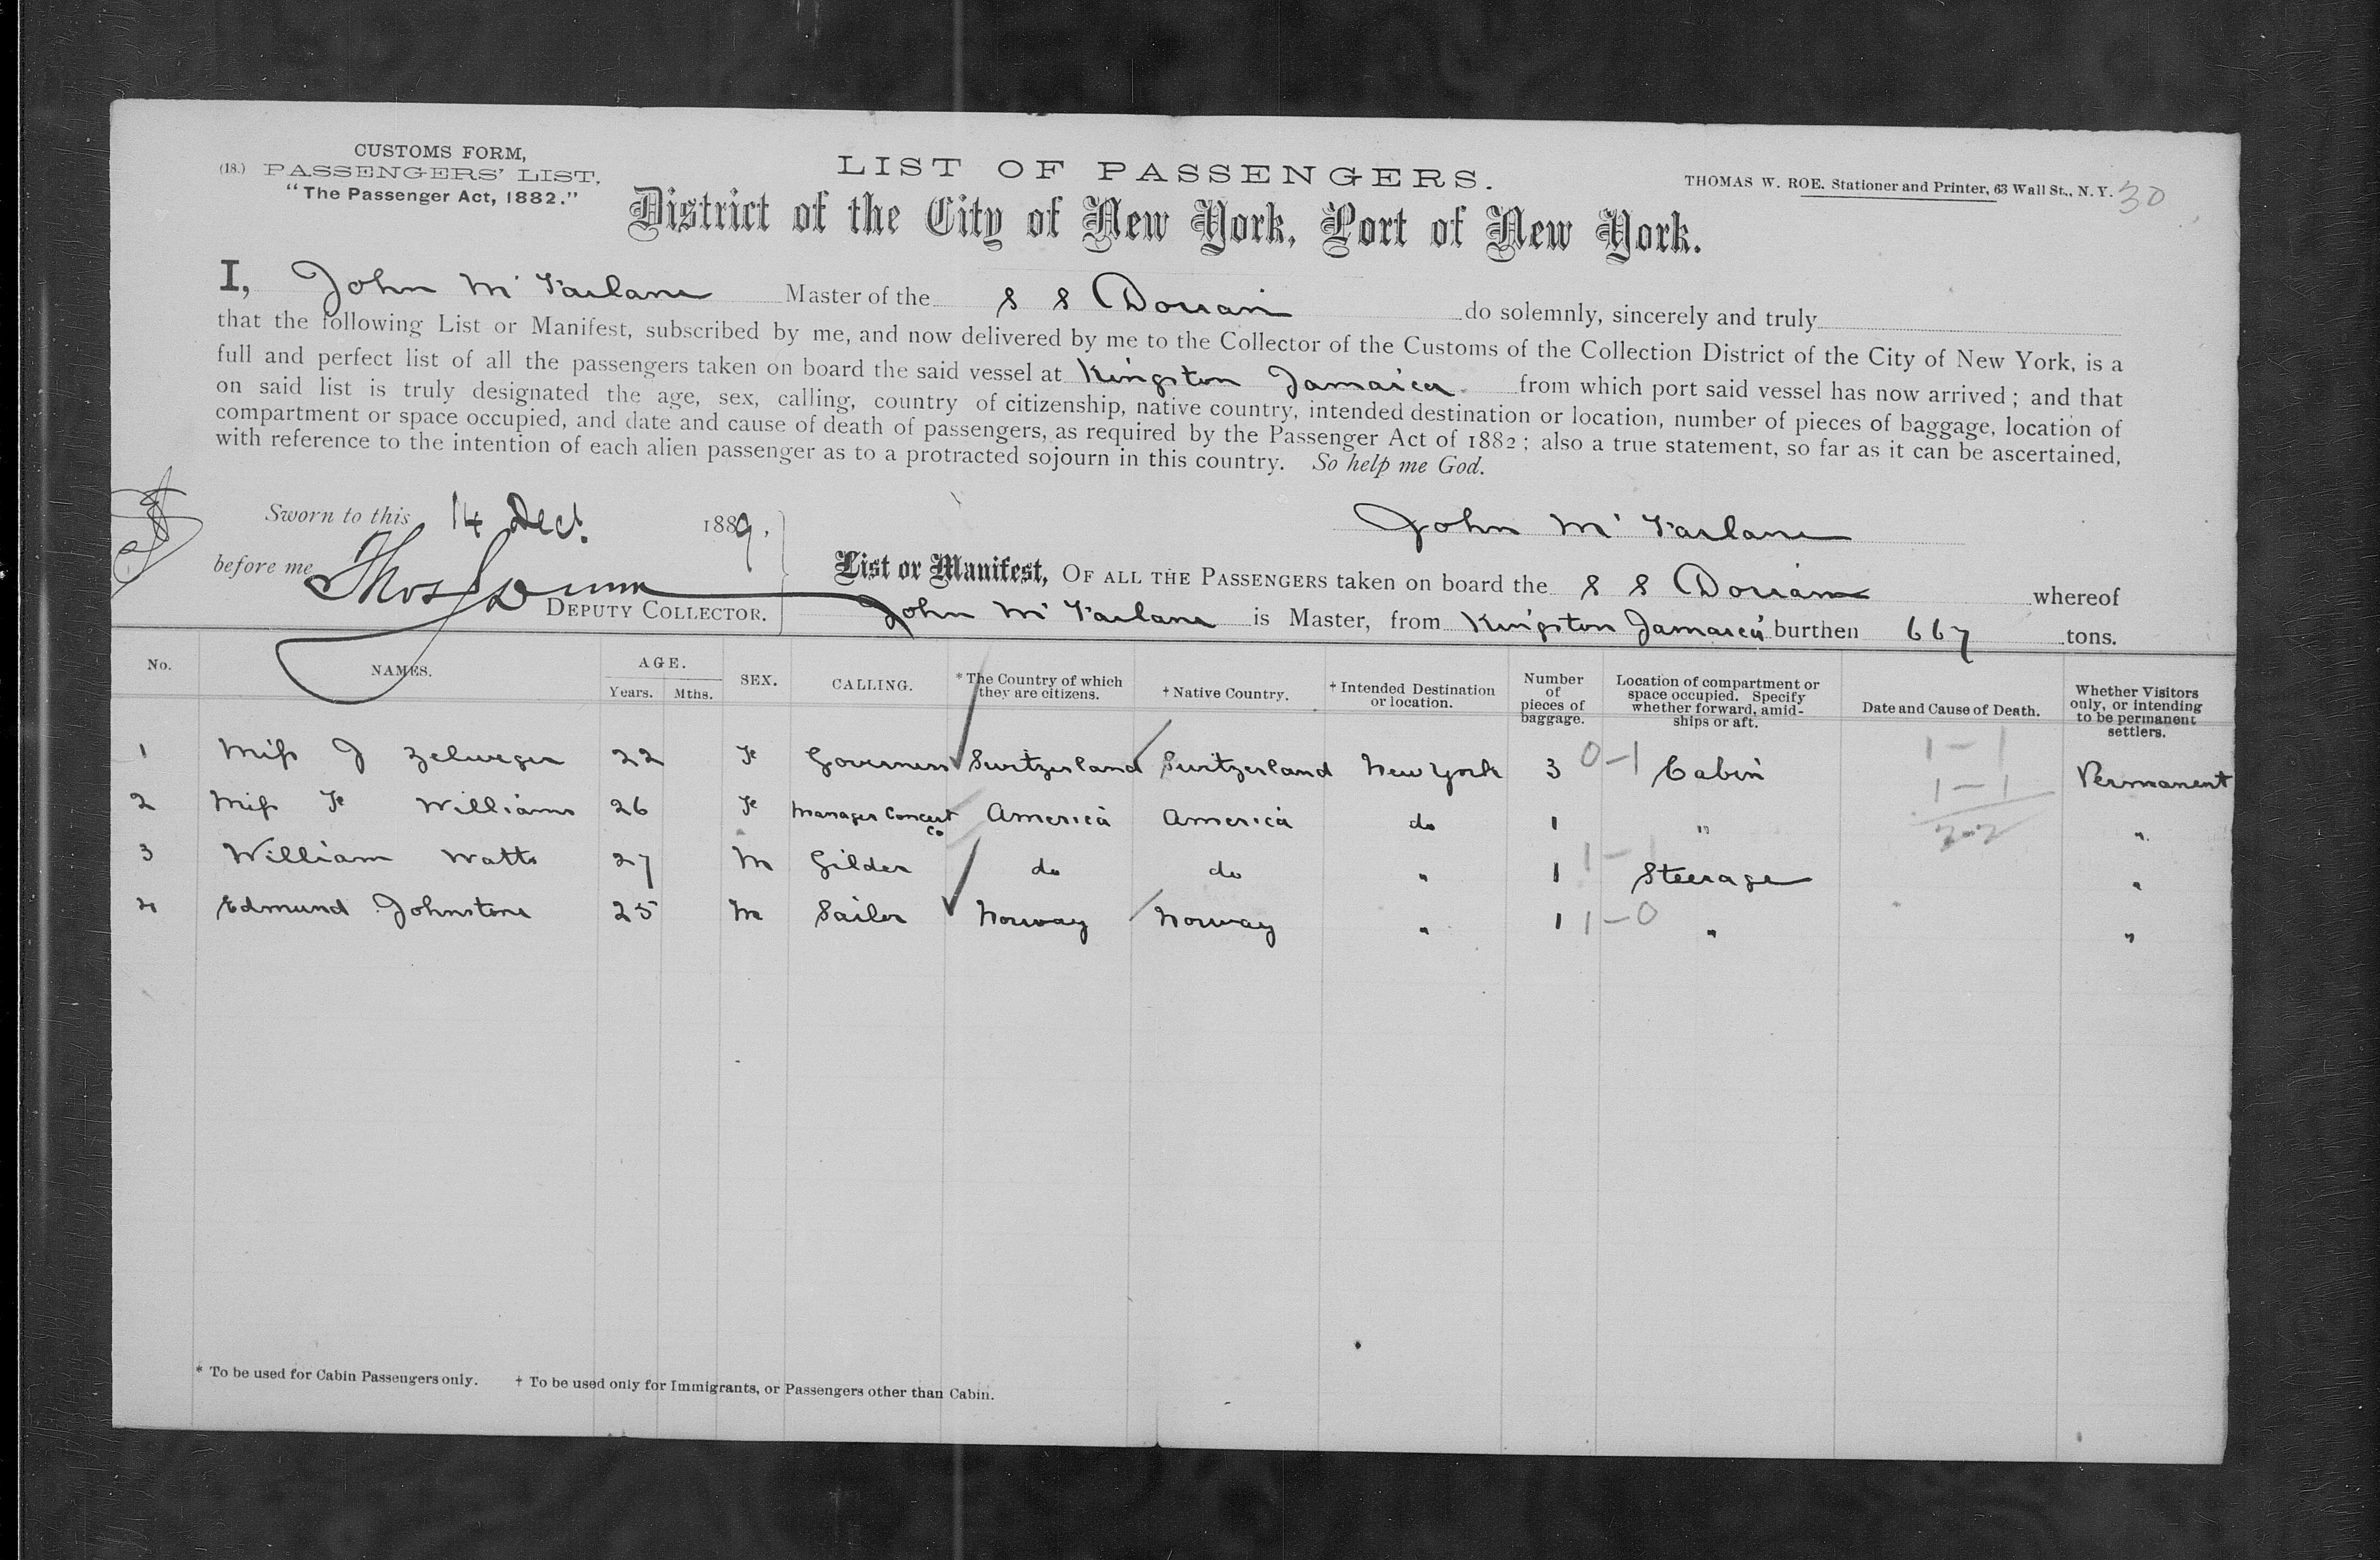 CUSTOMS FORM,
(18.) PASSENGERS' LIST,
"The Passenger Act, 1882."
LIST OF PASSENGERS.
THOMAS W. ROE. Stationer and Printer, 63 Wall St., N.Y. 30
District of the City of New York, Port of New York.
I, John McFarlane Master of the S S Dorian do solemnly, sincerely and truly
that the following List or Manifest, subscribed by me, and now delivered by me to the Collector of the Customs of the Collection District of the City of New York, is a
full and perfect list of all the passengers taken on board the said vessel at Kingston Jamaica from which port said vessel has now arrived; and that
on said list is truly designated the age, sex, calling, country of citizenship, native country, intended destination or location, number of pieces of baggage, location of
compartment or space occupied, and date and cause of death of passengers, as required by the Passenger Act of 1882; also a true statement, so far as it can be ascertained,
with reference to the intention of each alien passenger as to a protracted sojourn in this country. So help me God.
Sworn to this 14 Dec. 1889.
John McFarlane
before me Thos Dunn
DEPUTY COLLECTOR.
List or Manifest, OF ALL THE PASSENGERS taken on board the S S Dorian whereof
John McFarlane is Master, from Kingston Jamaica burthen 667 tons.
No. NAMES. AGE. Years. Mths. SEX. CALLING. * The Country of which they are citizens. † Native Country. † Intended Destination or location. Number of pieces of baggage. Location of compartment or space occupied. Specify whether forward, amidships or aft. Date and Cause of Death. Whether Visitors only, or intending to be permanent settlers.
1 Miss J Zelweger 22 Fe Governess Switzerland Switzerland New York 3 0-1 Cabin 1-1 Permanent
2 Miss Fe Williams 26 Fe Manager Concert Co America America do 1 " 1-1 "
2-2
3 William Watts 27 M Gilder do do " 1 1-1 Steerage "
4 Edmund Johnstone 25 M Sailor Norway Norway " 1 1-0 " "
* To be used for Cabin Passengers only. † To be used only for Immigrants, or Passengers other than Cabin.